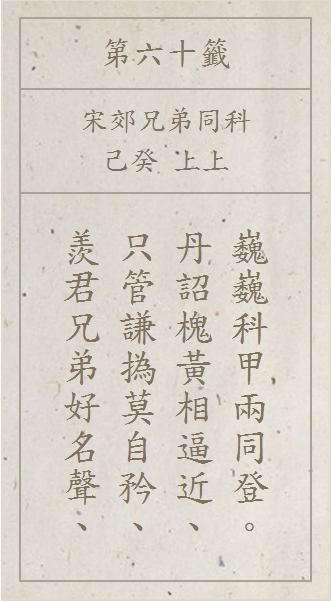 第六十籤
宋郊兄弟同科
己癸 上上
羨君兄弟好名聲、
只管謙撝莫自矜、
丹詔槐黃相逼近、
巍巍科甲兩同登。